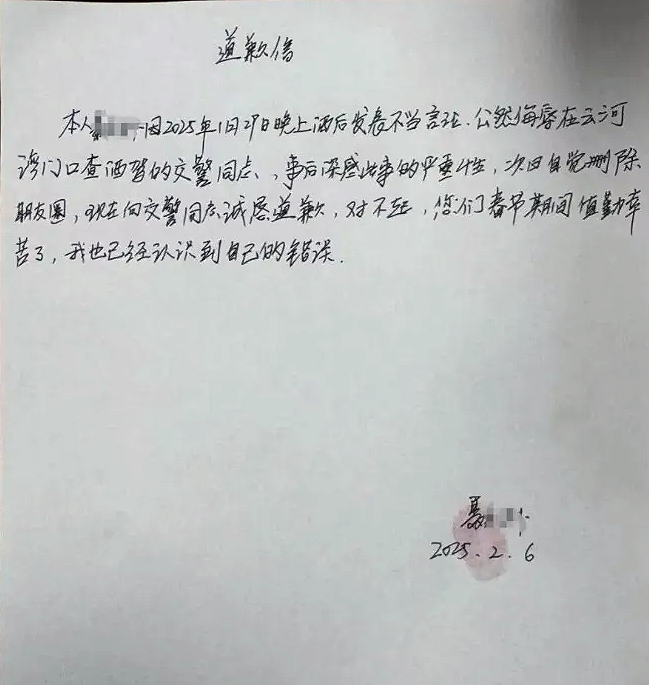 道歉信
本人 因2025年1月29日晚上酒后发表不当言论.公然侮辱在云河
湾门口查酒驾的交警同志,事后深感此事的严重性,次日自觉删除
朋友圈,现在向交警同志诚恳道歉,对不起,您们春节期间值勤辛
苦了,我也已经认识到自己的错误.
聂
2025.2.6